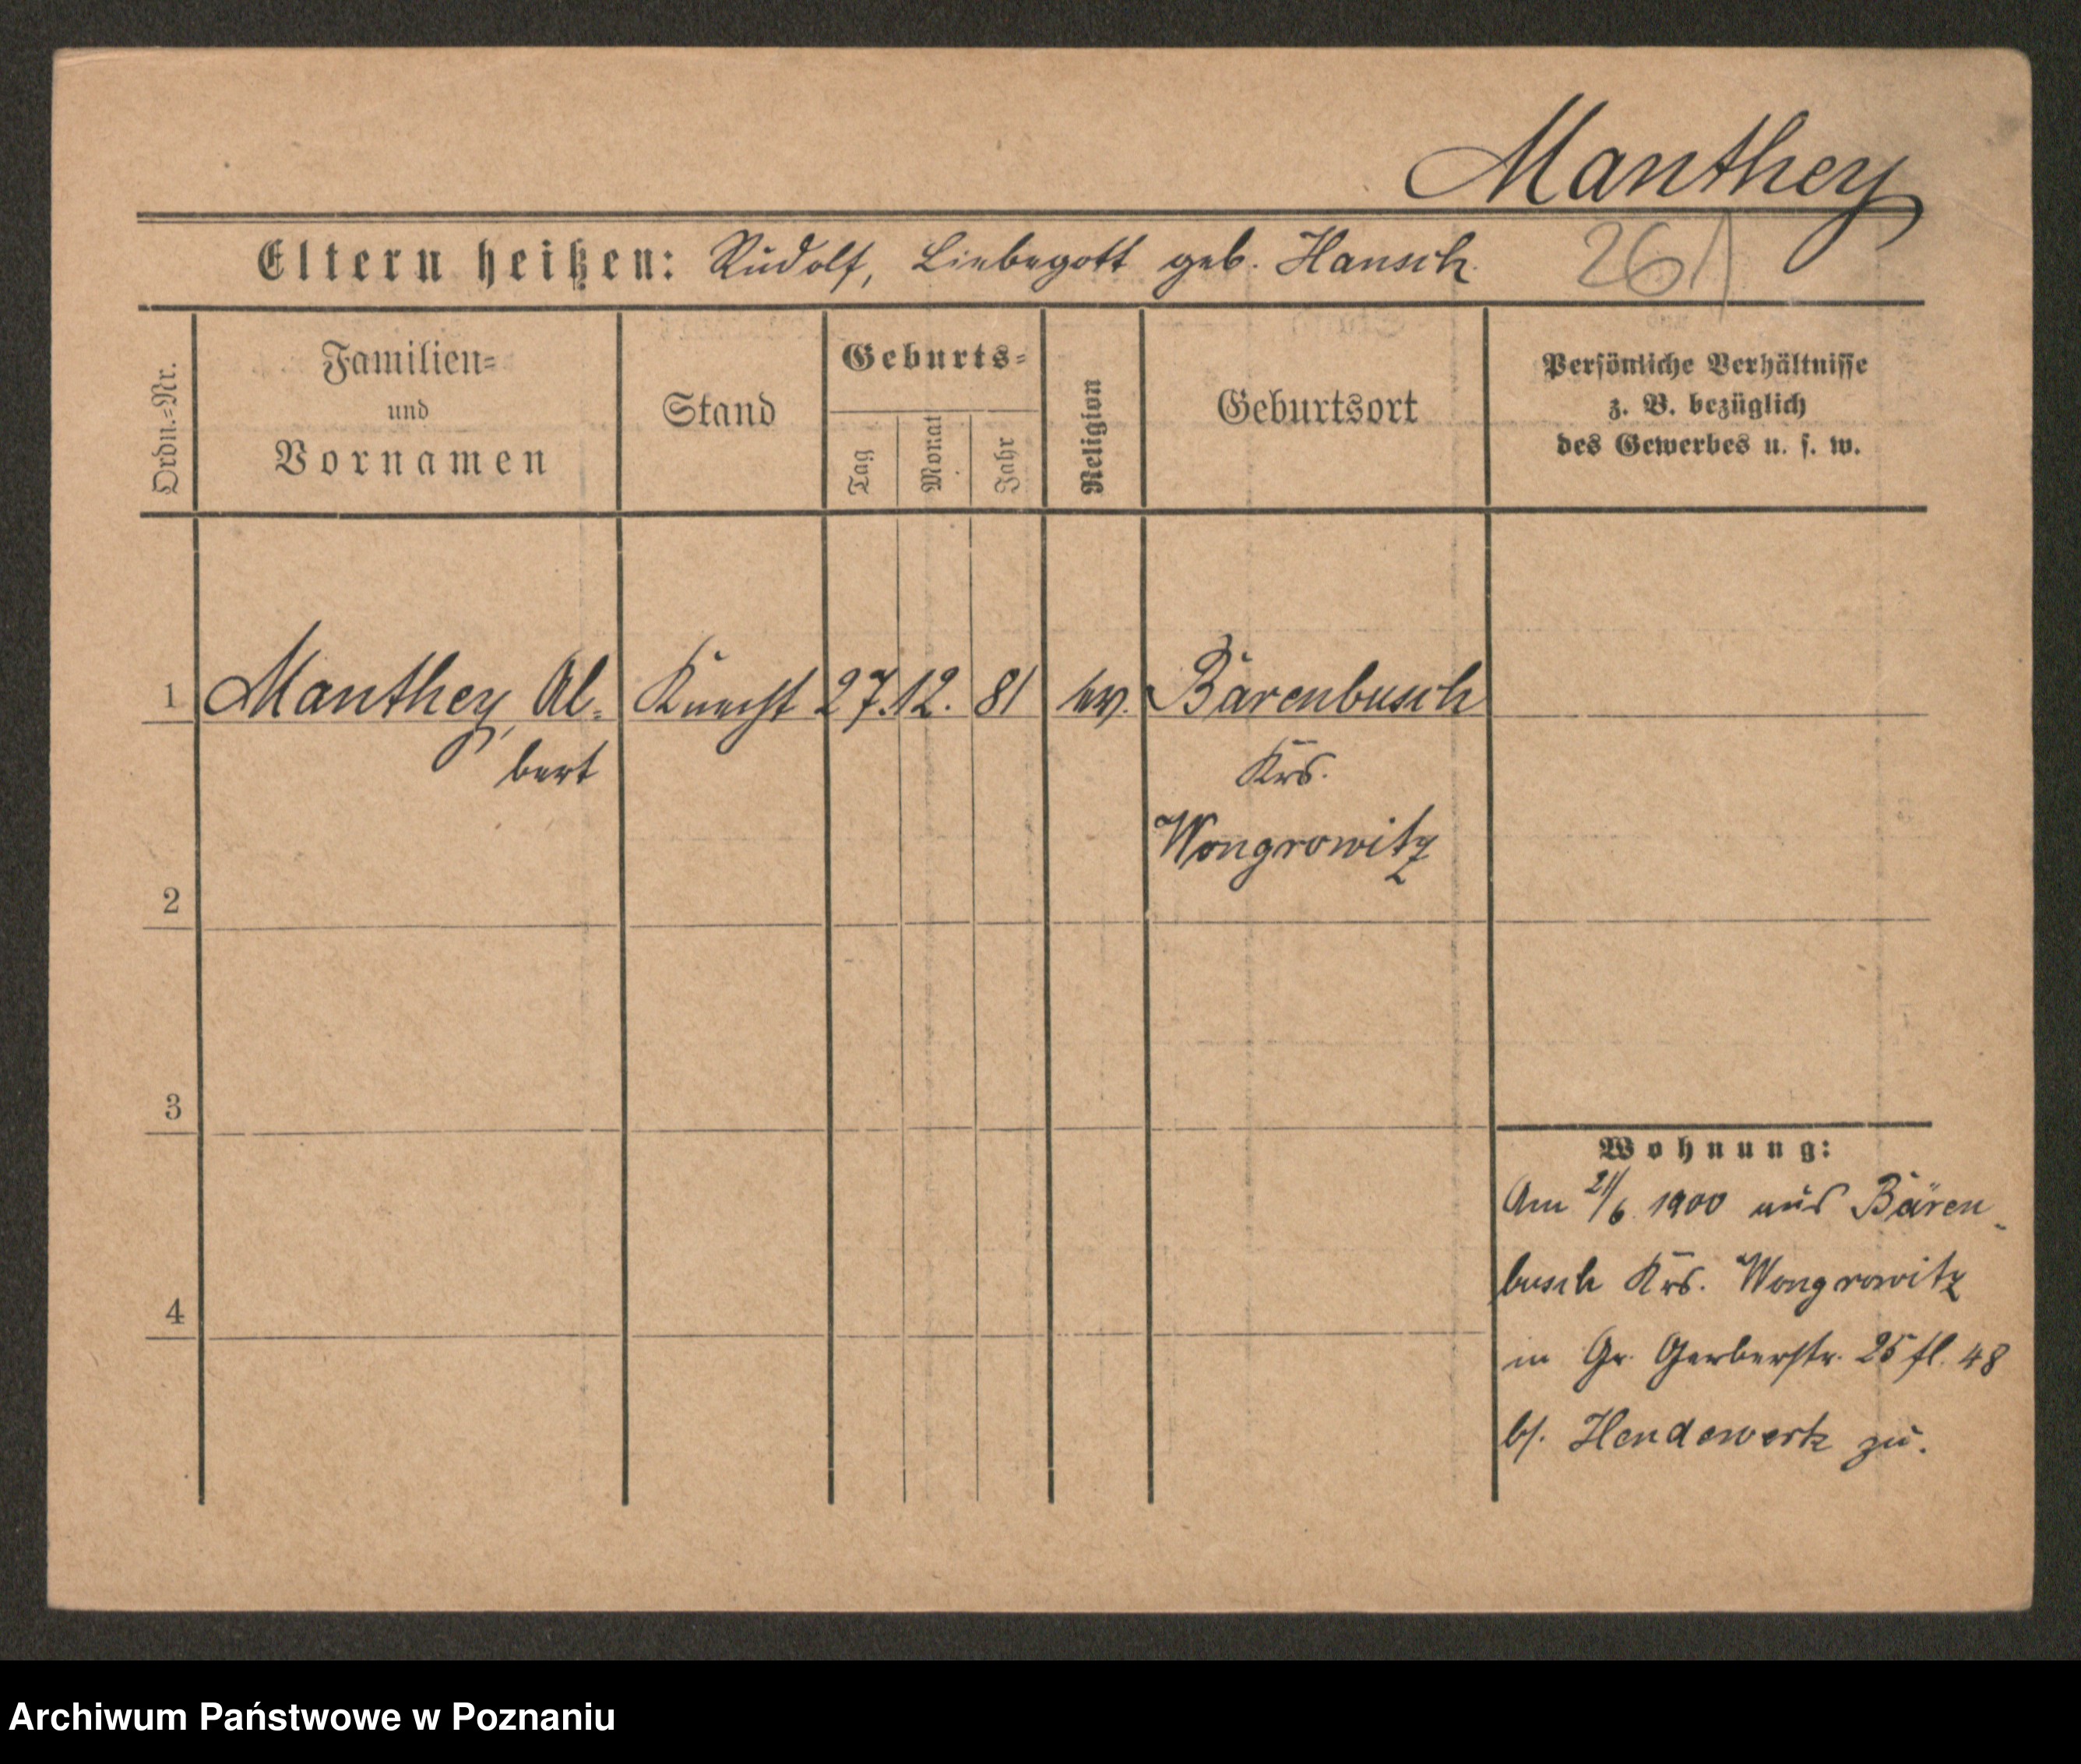 Manthey
261
Eltern heißen: Rudolf, Liebegott geb. Hansch.
Ordn.=Nr.
Familien=
und
Vornamen
Stand
Geburts=
Tag
Monat
Jahr
Religion
Geburtsort
Persönliche Verhältnisse
z. B. bezüglich
des Gewerbes u. s. w.
1 Manthey, Al= Knecht 27. 12. 81 ev. Bärenbusch
bert Krs.
Wongrowitz
2
3
Wohnung:
Am 21/6 1900 aus Bären=
busch Krs. Wongrowitz
4
in Gr. Gerberstr. 25 fl. 48
b/. Hendewerk zu.
Archiwum Państwowe w Poznaniu